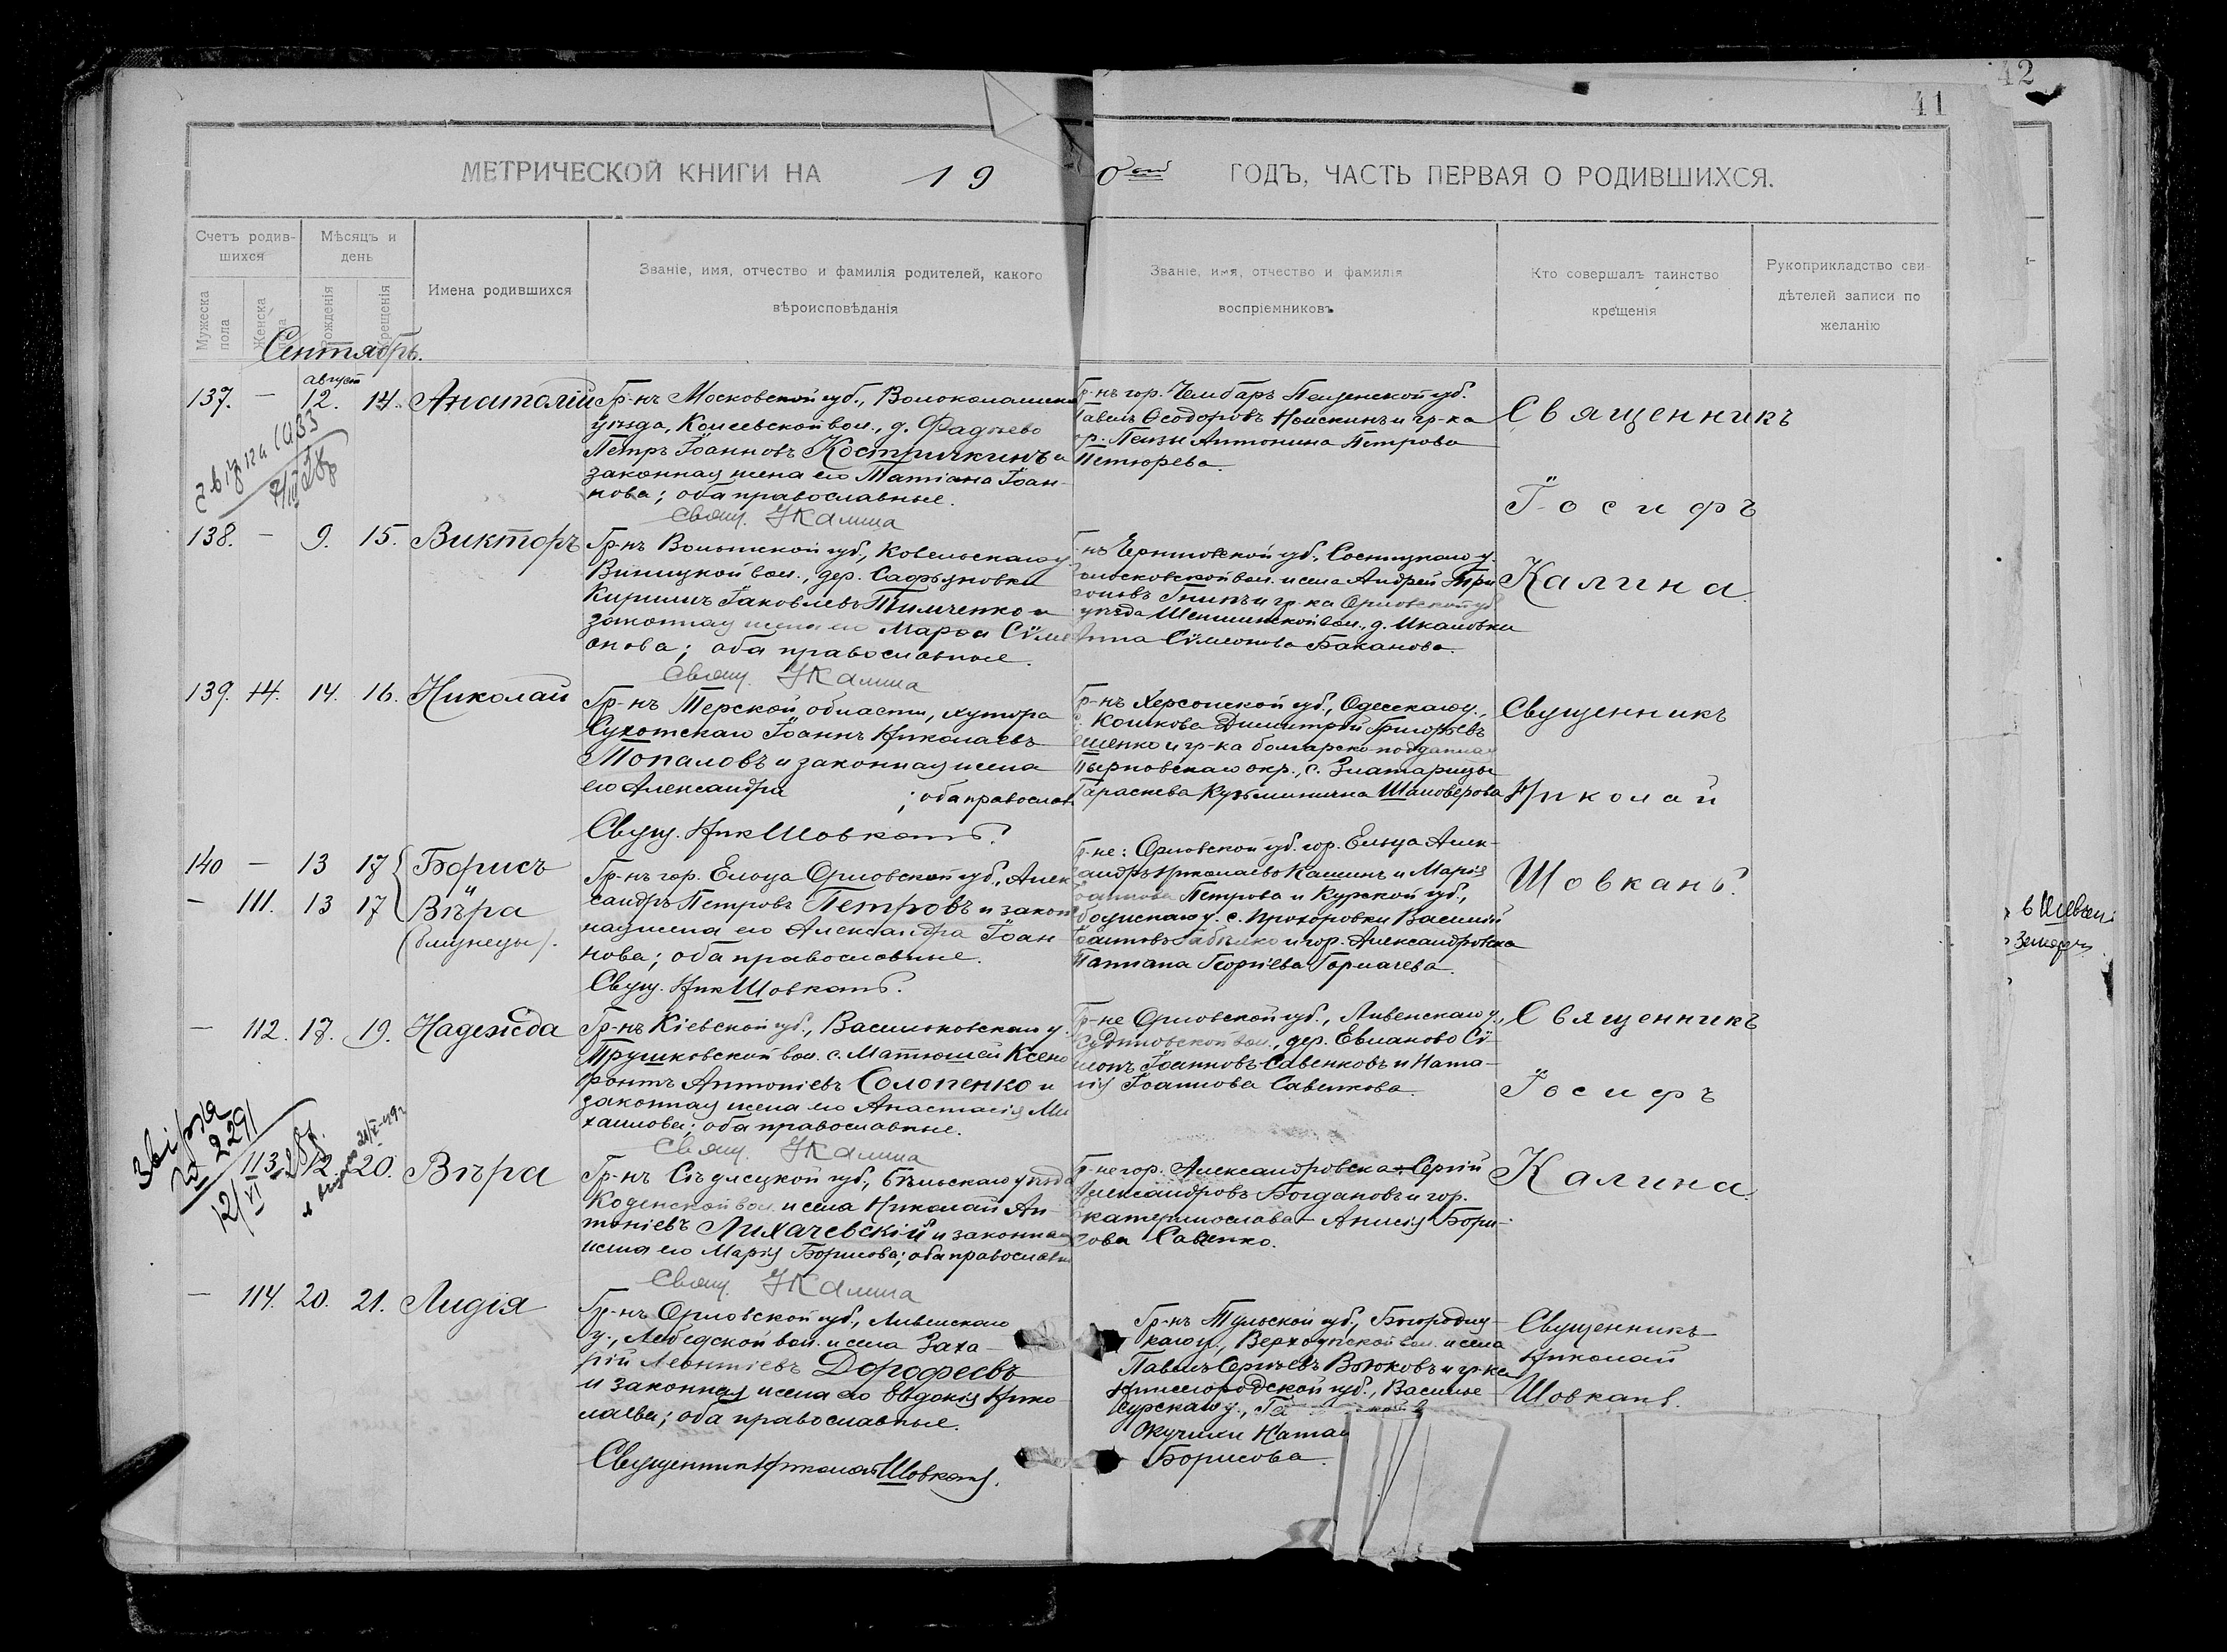 42
41
МЕТРИЧЕСКОЙ КНИГИ НА 19 0 ГОДЪ, ЧАСТЬ ПЕРВАЯ О РОДИВШИХСЯ.
Счетъ родив-
шихся
Мужеска
пола
Женска
пола
Мѣсяцъ и
день
Рожденія
Крещенія
Имена родившихся
Званіе, имя, отчество и фамилія родителей, какого
вѣроисповѣданія
Званіе, имя, отчество и фамилія
воспріемниковъ
Кто совершалъ таинство
крещенія
Рукоприкладство сви-
дѣтелей записи по
желанію
Сентябрь.
август
137. — 12. 14. Анатолій
Гр-нъ Московской губ., Волоколамска
уѣзда, вол., д. Фадѣево
Петръ Іоанновъ Костричкинъ и
законная жена его Татіана Іоан-
нова; оба православные.
Свящ. І Калина
гр-нъ гор. Чембаръ Пензенской губ.
Павелъ Ѳеодоровъ и гр-ка
гор. Пензы Антонина Петрова
Петюрева.
Священникъ
Іосифъ
Калина.
138. — 9. 15. Викторъ
Гр-нъ Волынской губ., Ковельскаго у.
вол., дер.
Кириллъ Іаковлевъ Тимченко и
законная жена его Марѳа Сѵме
онова; оба православные.
Свящ. І Калина
нъ Черниговской губ., Сосницкаго у.
вол. и села Андрей
и гр-ка Орловской губ
уѣзда вол., д.
Анна Сѵмеонова Баканова.
139. 14. 14. 16. Николай
Гр-нъ Терской области, хутора
Сухотскаго Іоаннъ Николаевъ
Топаловъ и законная жена
его Александра ; оба православ
Свящ. Ник Шовкань.
Гр-нъ Херсонской губ., Одесскаго у.,
с. Кошкова Димитрій Григорьевъ
и гр-ка болгарско-подданная
Тырновскаго окр., с. Златарицы
Параскева Кузьминична Шамоверова
Священникъ
Николай
Шовкань.
140 — 13 17 Борисъ
— 111. 13 17 Вѣра
(близнецы).
Гр-нъ гор. Ельца Орловской губ., Алек
сандръ Петровъ Петровъ и закон
ная жена его Александра Іоан-
нова; оба православные.
Свящ. Ник Шовкань.
гр-не: Орловской губ. гор. Ельца Алек-
сандръ Николаевъ Кашинъ и Марія
Іоаннова Петрова и Курской губ.,
у. с. Прохоровки Василій
Іоанновъ и гор. Александровска
Татіана Георгіева Горлачева.
— 112. 17. 19. Надежда
Гр-нъ Кіевской губ., Васильковскаго у.
Трушковской вол. с. Матюшей Ксено
фонтъ Антоніевъ Солопенко и
законная жена его Анастасія Ми
хаилова; оба православные.
Свящ. І Калина
Гр-не Орловской губ., Ливенскаго у.,
вол., дер. Евланово Сѵ-
меонъ Іоанновъ Савенковъ и Ната-
лія Іоаннова Савенкова.
Священникъ
Іосифъ
Калина.
Звірка
2291
113. 12. 20. Вѣра
Гр-нъ Сѣдлецкой губ., Бѣльскаго уѣзда
Коденской вол. и села Николай Ан-
тоніевъ Лихачевскій и законная
жена его Марія Борисова; оба православн
Свящ. І Калина
гр-не гор. Александровска - Сергій
Александровъ Богдановъ и гор.
Екатеринослава - Анисія Бори-
сова Савенко.
— 114. 20. 21. Лидія
Гр-нъ Орловской губ., Ливенскаго
у., Лебедской вол. и села Заха-
рій Леонтіевъ Дорофеевъ
и законная жена его Евдокія Нико
лаева; оба православные.
Священник Николай Шовкань.
Гр-нъ Тульской губ., Богородиц-
каго у., Верхоупской вол. и села
Павелъ Сергѣевъ Вьюковъ и гр-ка
Нижегородской губ., Василье-
сурскаго у.,
Натал
Борисова.
Священникъ
Николай
Шовкань.